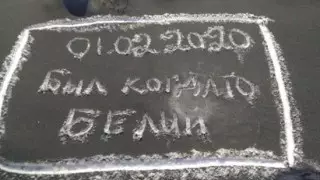 01.02.2020
БИЛ КОГАТО
БЕЛИИ